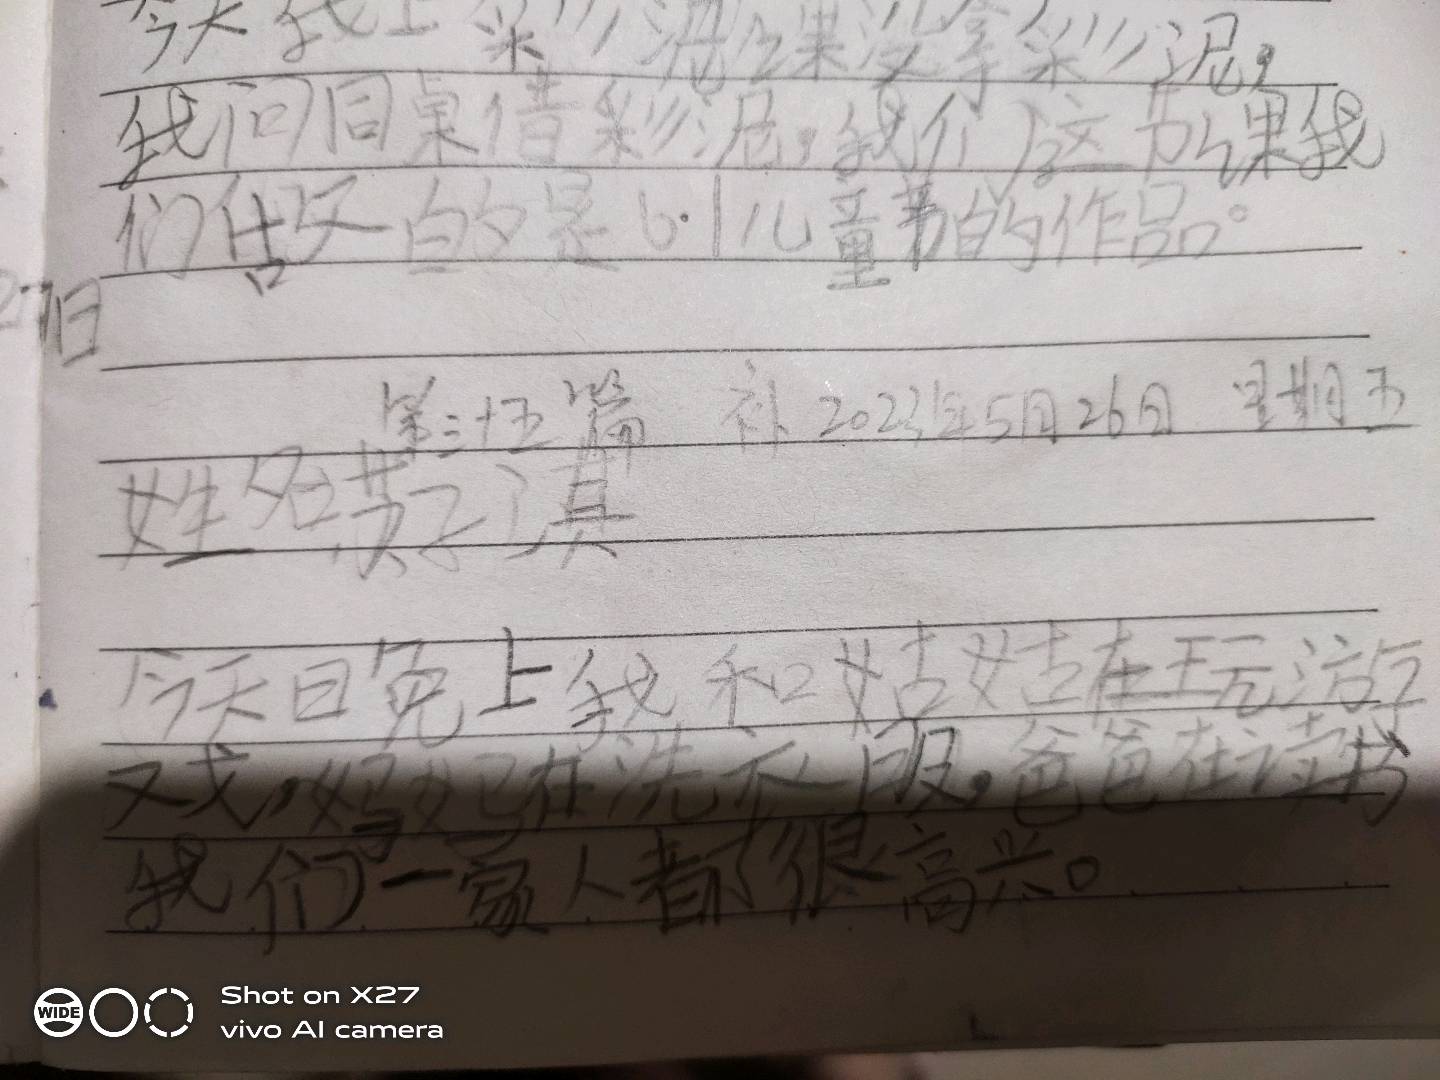 今天我上彩泥课没拿彩泥,
我问同桌借彩泥,我们这节课我
们做的是6.1儿童节的作品。
27日
第三十五篇 补 2023年5月26日 星期五
姓名 苏子淇
今天晚上我和姑姑在玩游
戏,妈妈在洗衣服,爸爸在读书
我们一家人都很高兴。
WIDE
Shot on X27
vivo AI camera